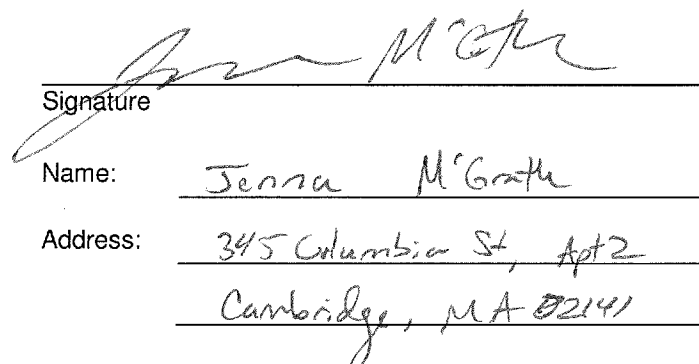 Jenna McGrath
Signature
Name: Jenna McGrath
Address: 345 Columbia St, Apt 2
Cambridge, MA 02141